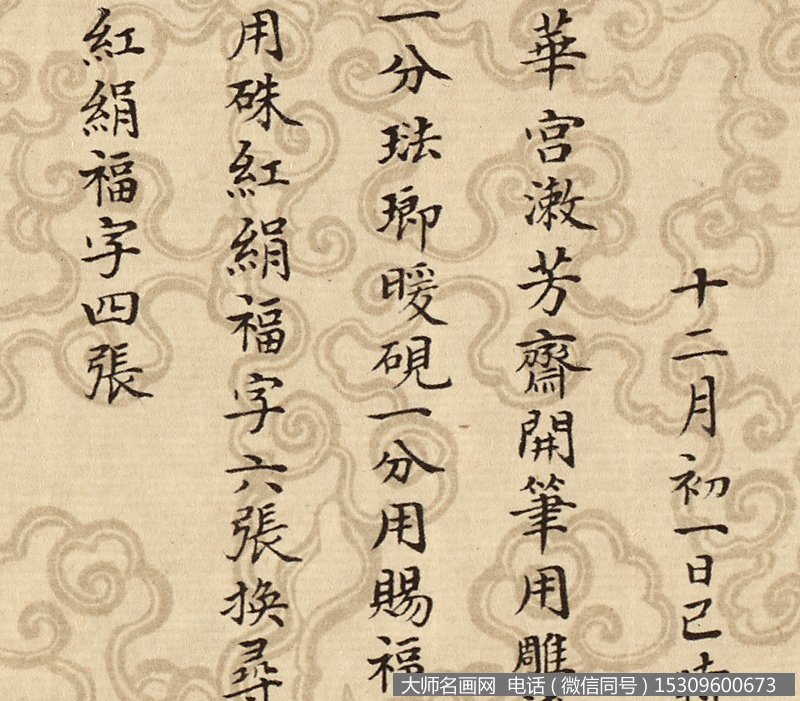 十二月初一日已
華宮漱芳齋開筆用雕
一分琺瑯暖硯一分用賜福
用硃紅絹福字六張換尋
紅絹福字四張
大师名画网 电话（微信同号）15309600673